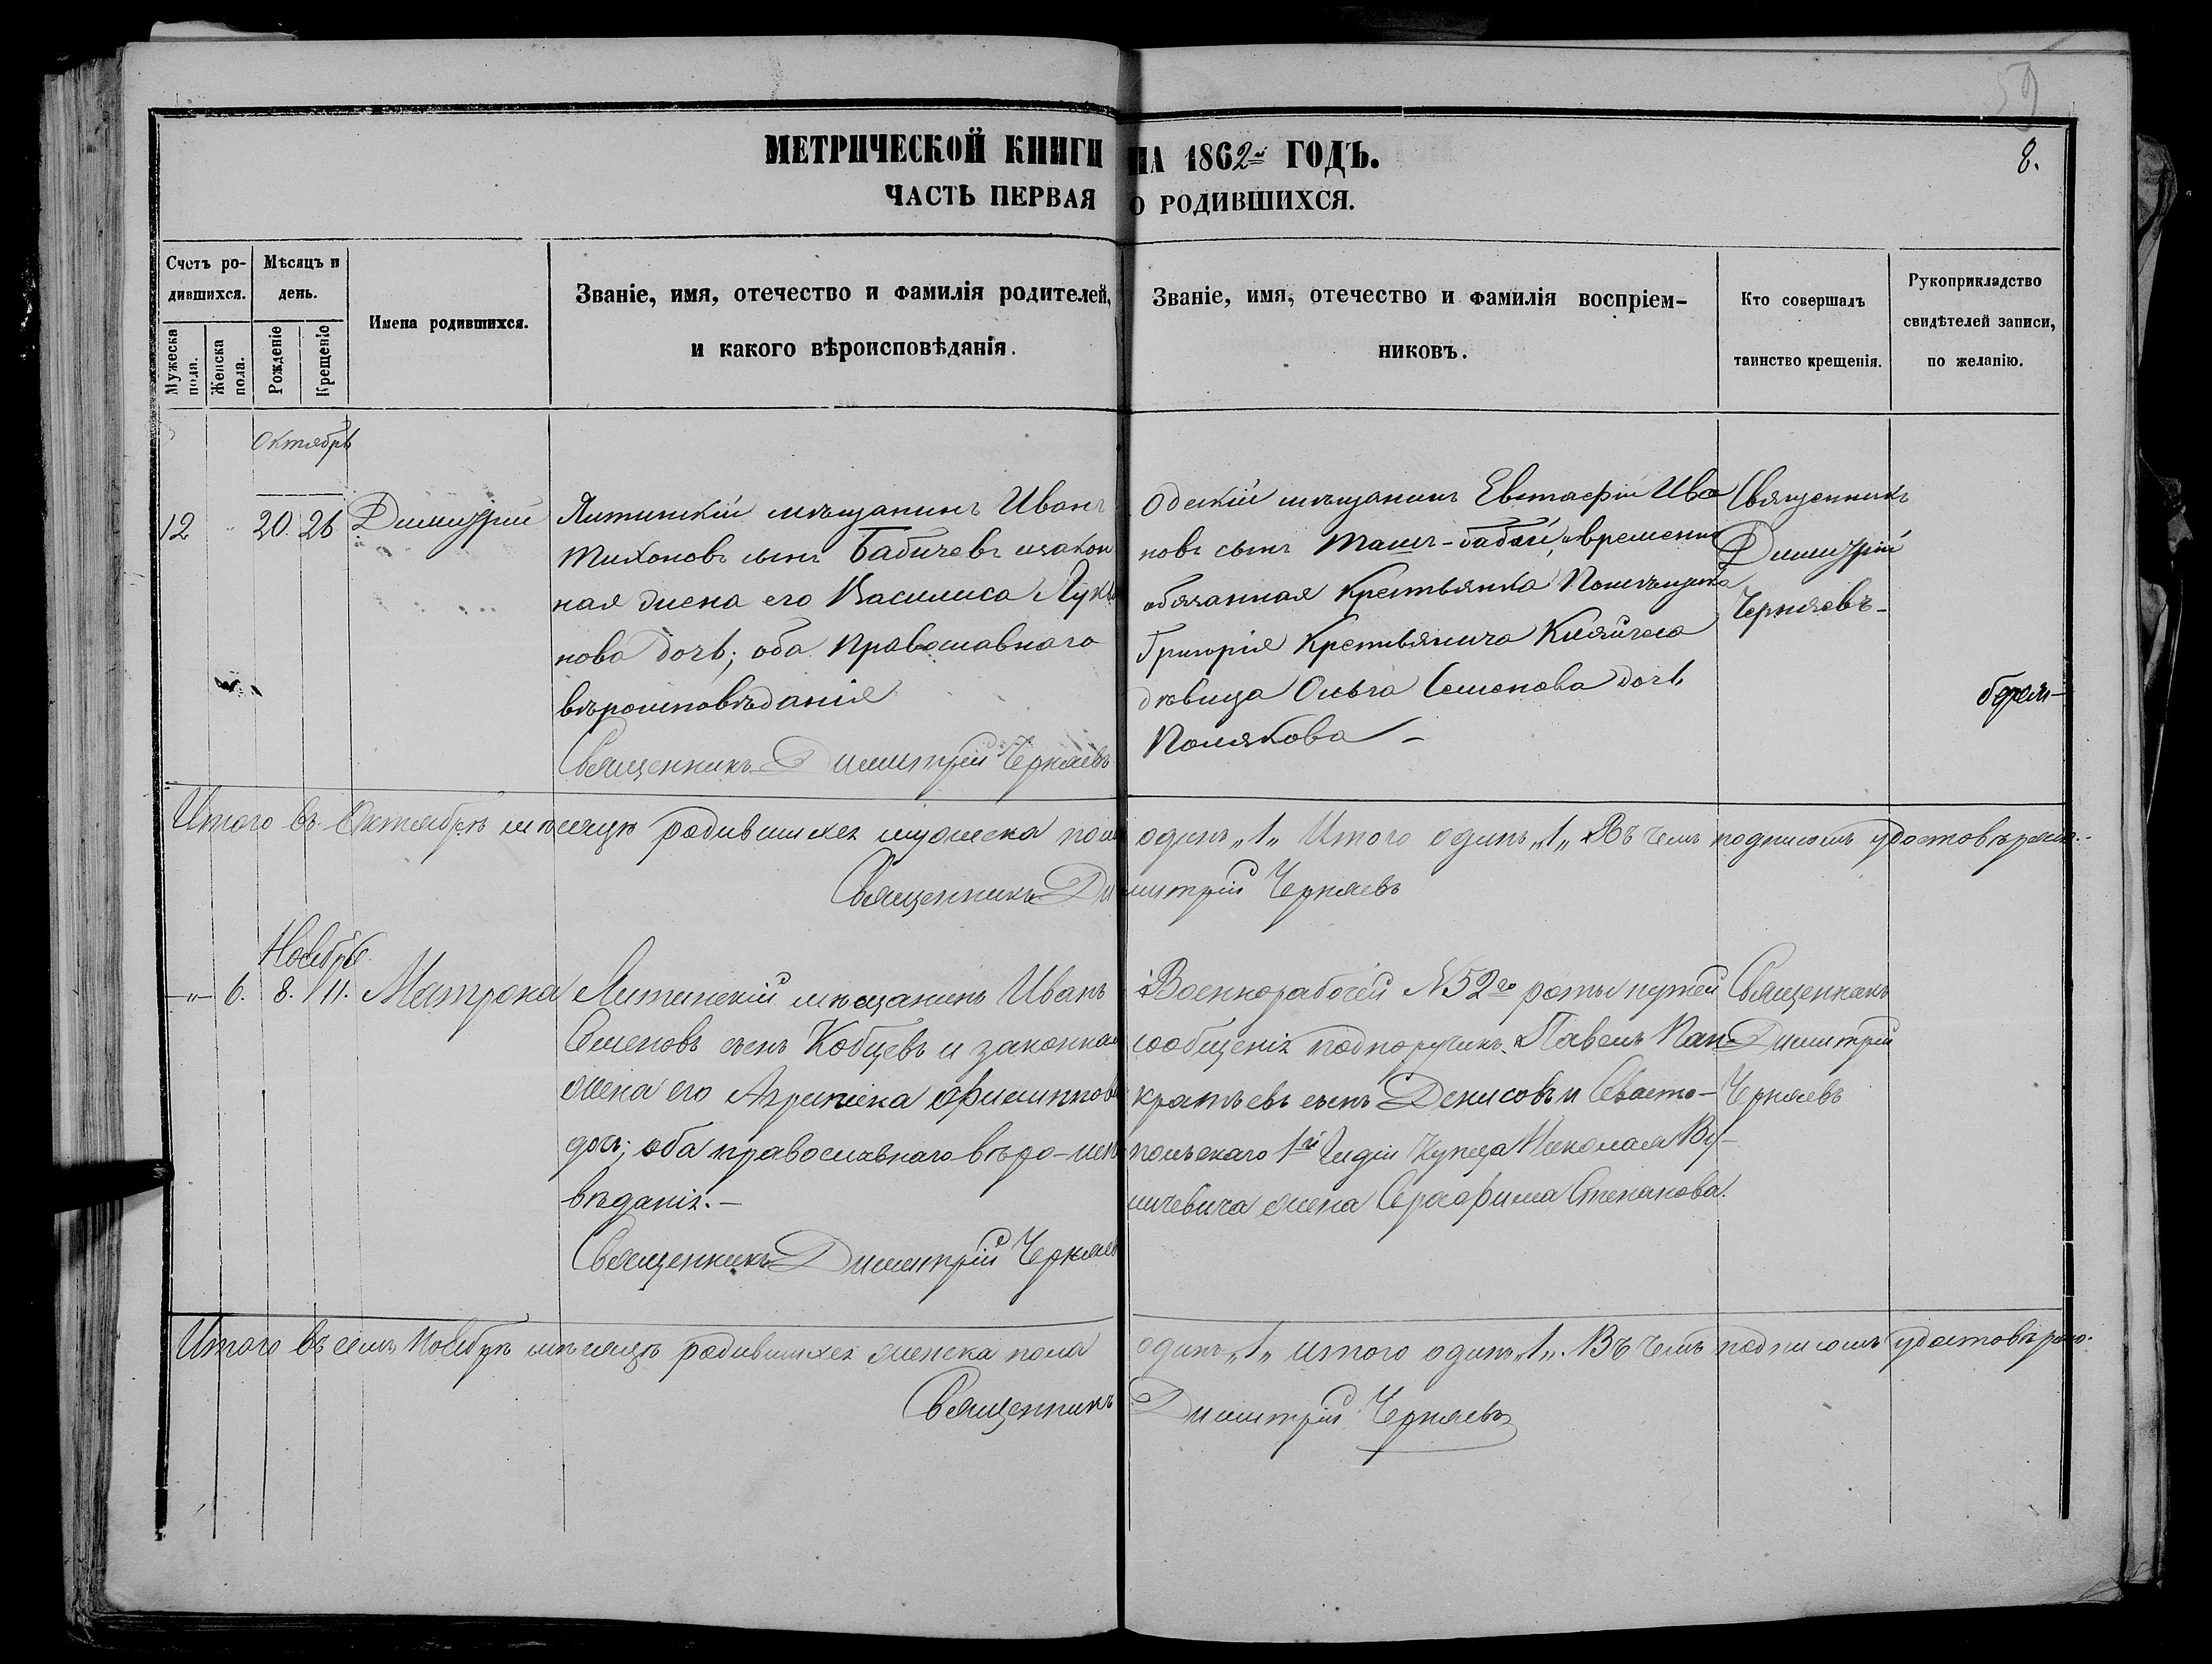 59
МЕТРИЧЕСКОЙ КНИГИ НА 1862й ГОДЪ.
8.
ЧАСТЬ ПЕРВАЯ О РОДИВШИХСЯ.
Счетъ родившихся.
Мужеска пола.
Женска пола.
Мѣсяцъ и день.
Рожденіе
Крещеніе
Имена родившихся.
Званіе, имя, отечество и фамилія родителей,
и какого вѣроисповѣданія.
Званіе, имя, отечество и фамилія воспріем-
никовъ.
Кто совершалъ
таинство крещенія.
Рукоприкладство
свидѣтелей записи,
по желанію.
Октябрь
12 " 20. 26 Димитрій
Ялтинскій мѣщанинъ Иванъ
Тихоновъ сынъ Бабичевъ изакон
ная жена его Василиса Лукья
нова дочь; оба православнаго
вѣроисповѣданія
Священникъ Димитрій Черняевъ
Одескій мѣщанинъ Евстафій Ива
новъ сынъ Ташъ-бабай, и временно
обязанная Крестьянка Помѣщика
Григорія
дѣвица Ольга Семенова дочь
Полякова –
Священникъ
Димитрій
Черняевъ–
Итого въ Октябрѣ мѣсяцѣ родившихся мужеска пола одинъ „1„ Итого одинъ „1„ Въ чемъ подписомъ удостовѣряю.
Священникъ Димитрій Черняевъ
Ноябрь
–"– 6. 8. 11. Матрона
Ялтинскій мѣщанинъ Иванъ
Семеновъ сынъ Кобцевъ и законная
жена его Агрипина Филиппова
дочь; оба православнаго вѣро-испо
вѣданія.–
Священникъ Димитрій Черняевъ
Военнорабочей №52го роты путей
сообщенія подпоручикъ Павелъ Пан-
кратьевъ сынъ Денисовъ и Севасто-
польскаго 1й Гилдіи Купца Николая
жена Серафима Степанова.
Священникъ
Димитрій
Черняевъ
Итого въ семъ Ноябрѣ мѣсяцѣ родившихся женска пола одинъ „1„ итого одинъ „1„. Въ чемъ подписомъ удостовѣряю.
Священникъ Димитрій Черняевъ